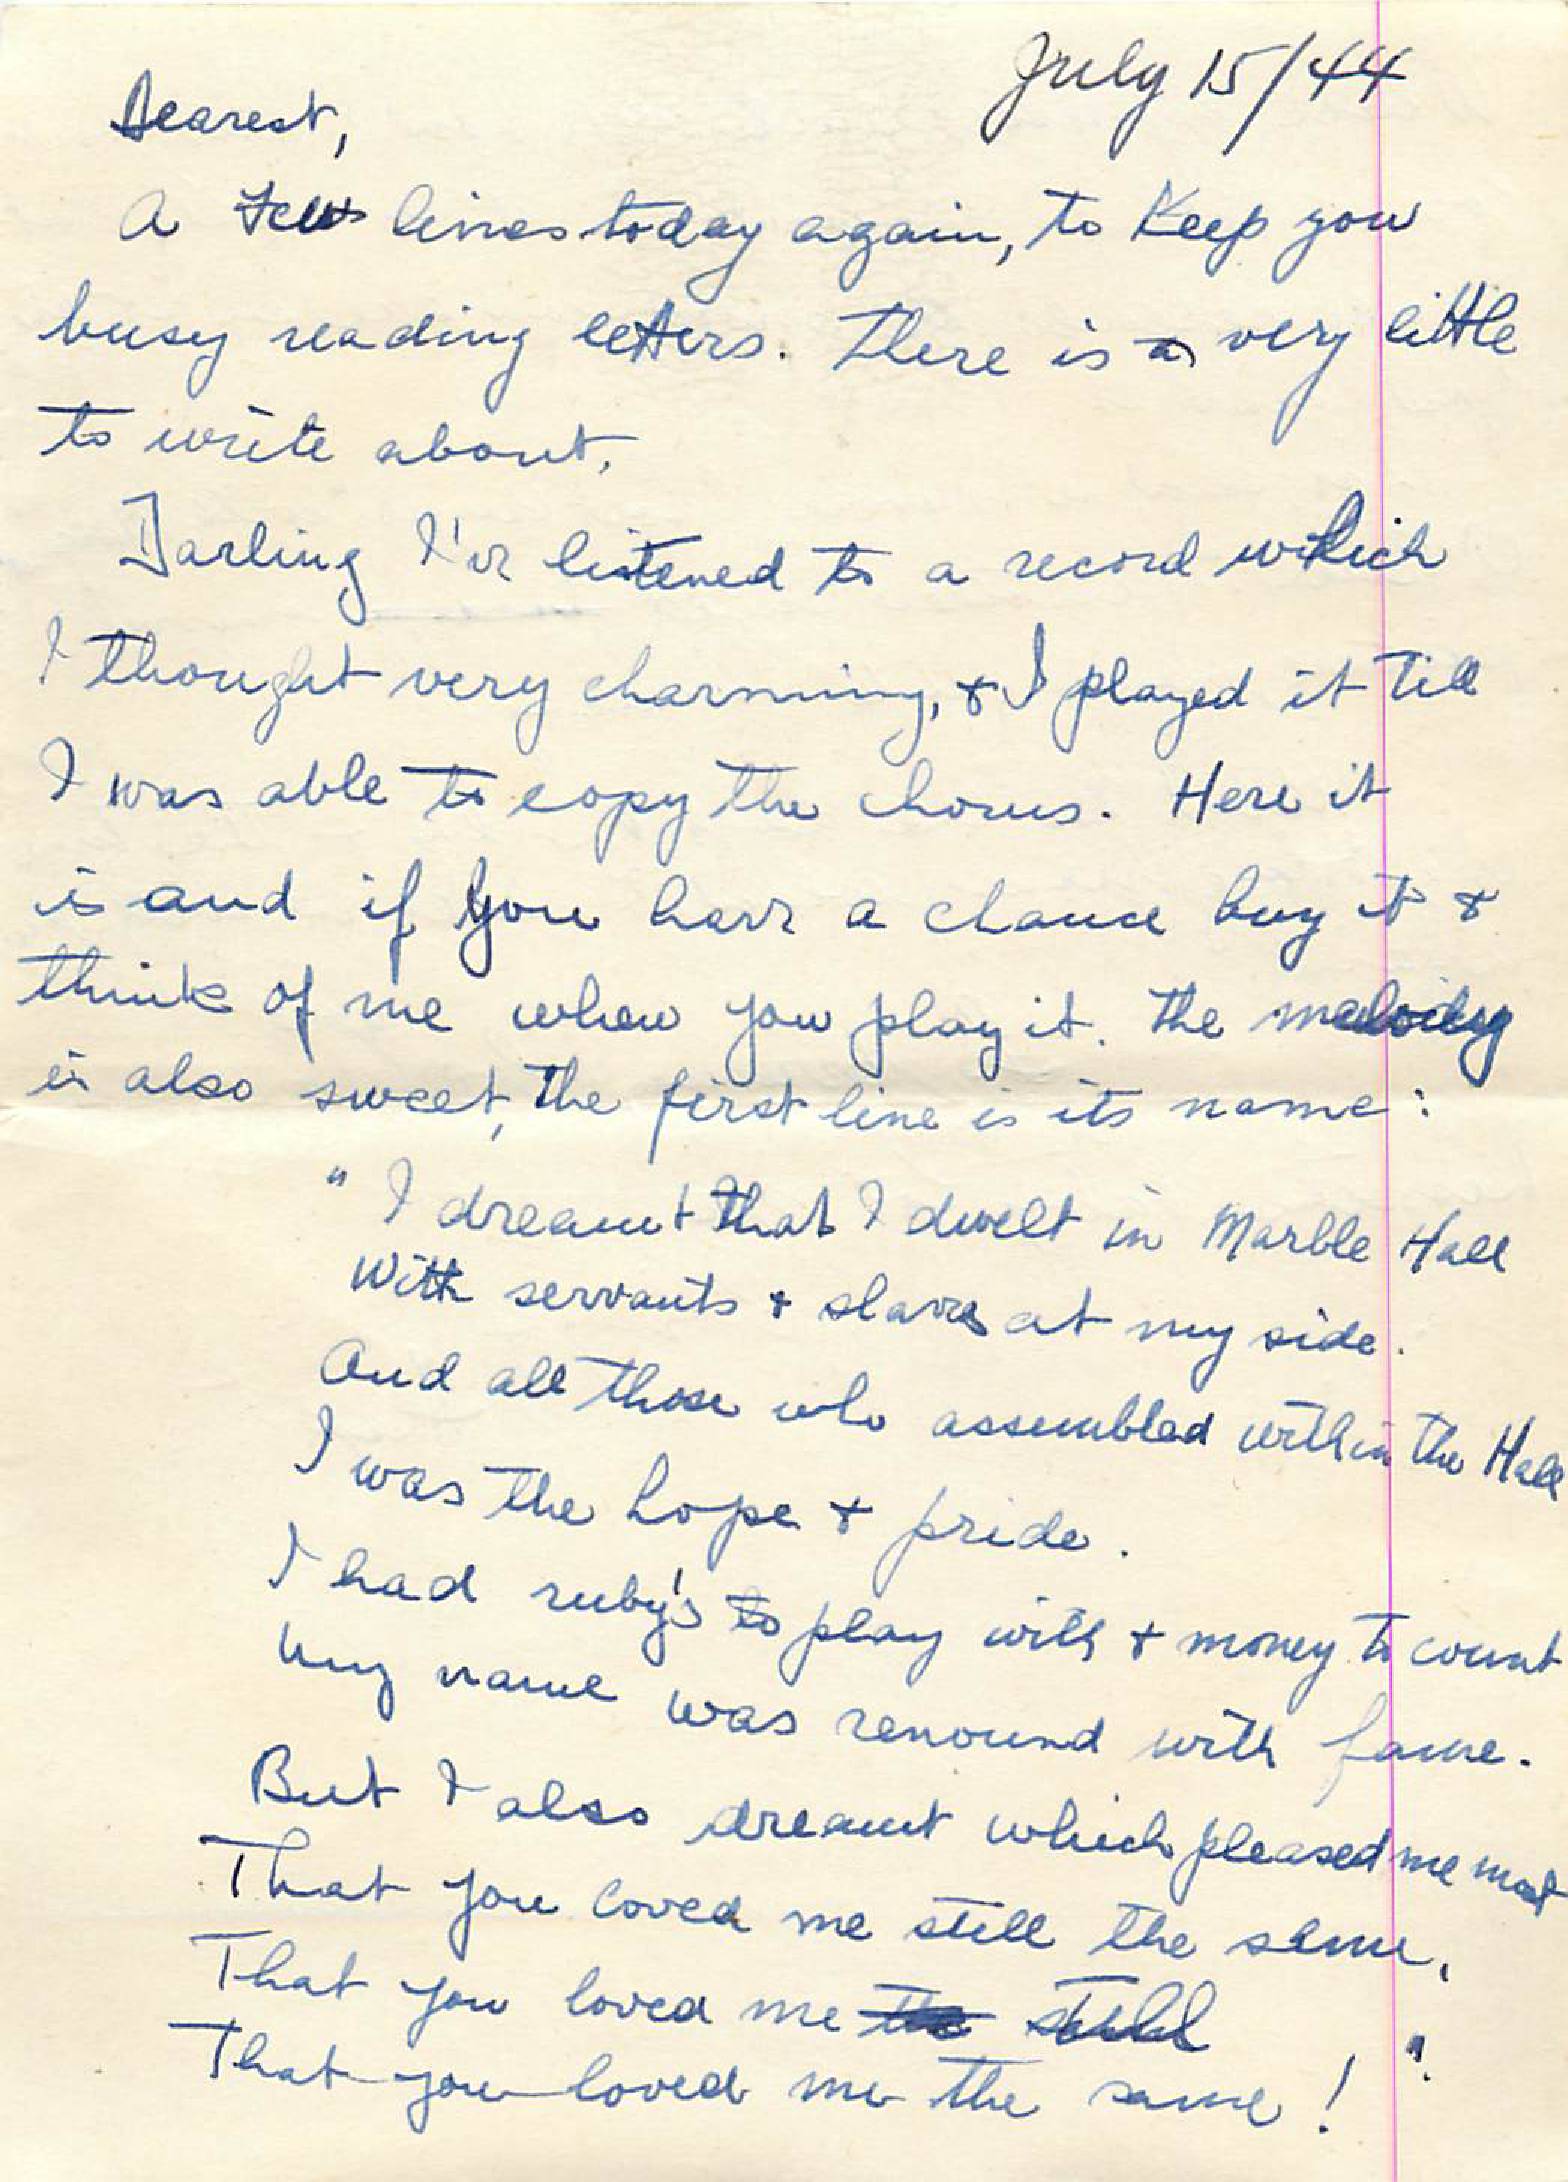 July 15/44
Dearest,
A few lines today again, to keep you
busy reading letters. There is a very little
to write about.
Darling I've listened to a record which
I thought very charming, & I played it till
I was able to copy the chorus. Here it
is and if you have a chance buy it &
think of me when you play it. The melody
is also sweet, the first line is its name:
" I dreamt that I dwelt in Marble Hall
With servants & slaves at my side.
And all those who assembled within the Hall
I was the hope & pride.
I had ruby's to play with & money to count
My name was renound with fame.
But I also dreamt which pleased me most
That you loved me still the same,
That you loved me still
That you loved me the same! ".